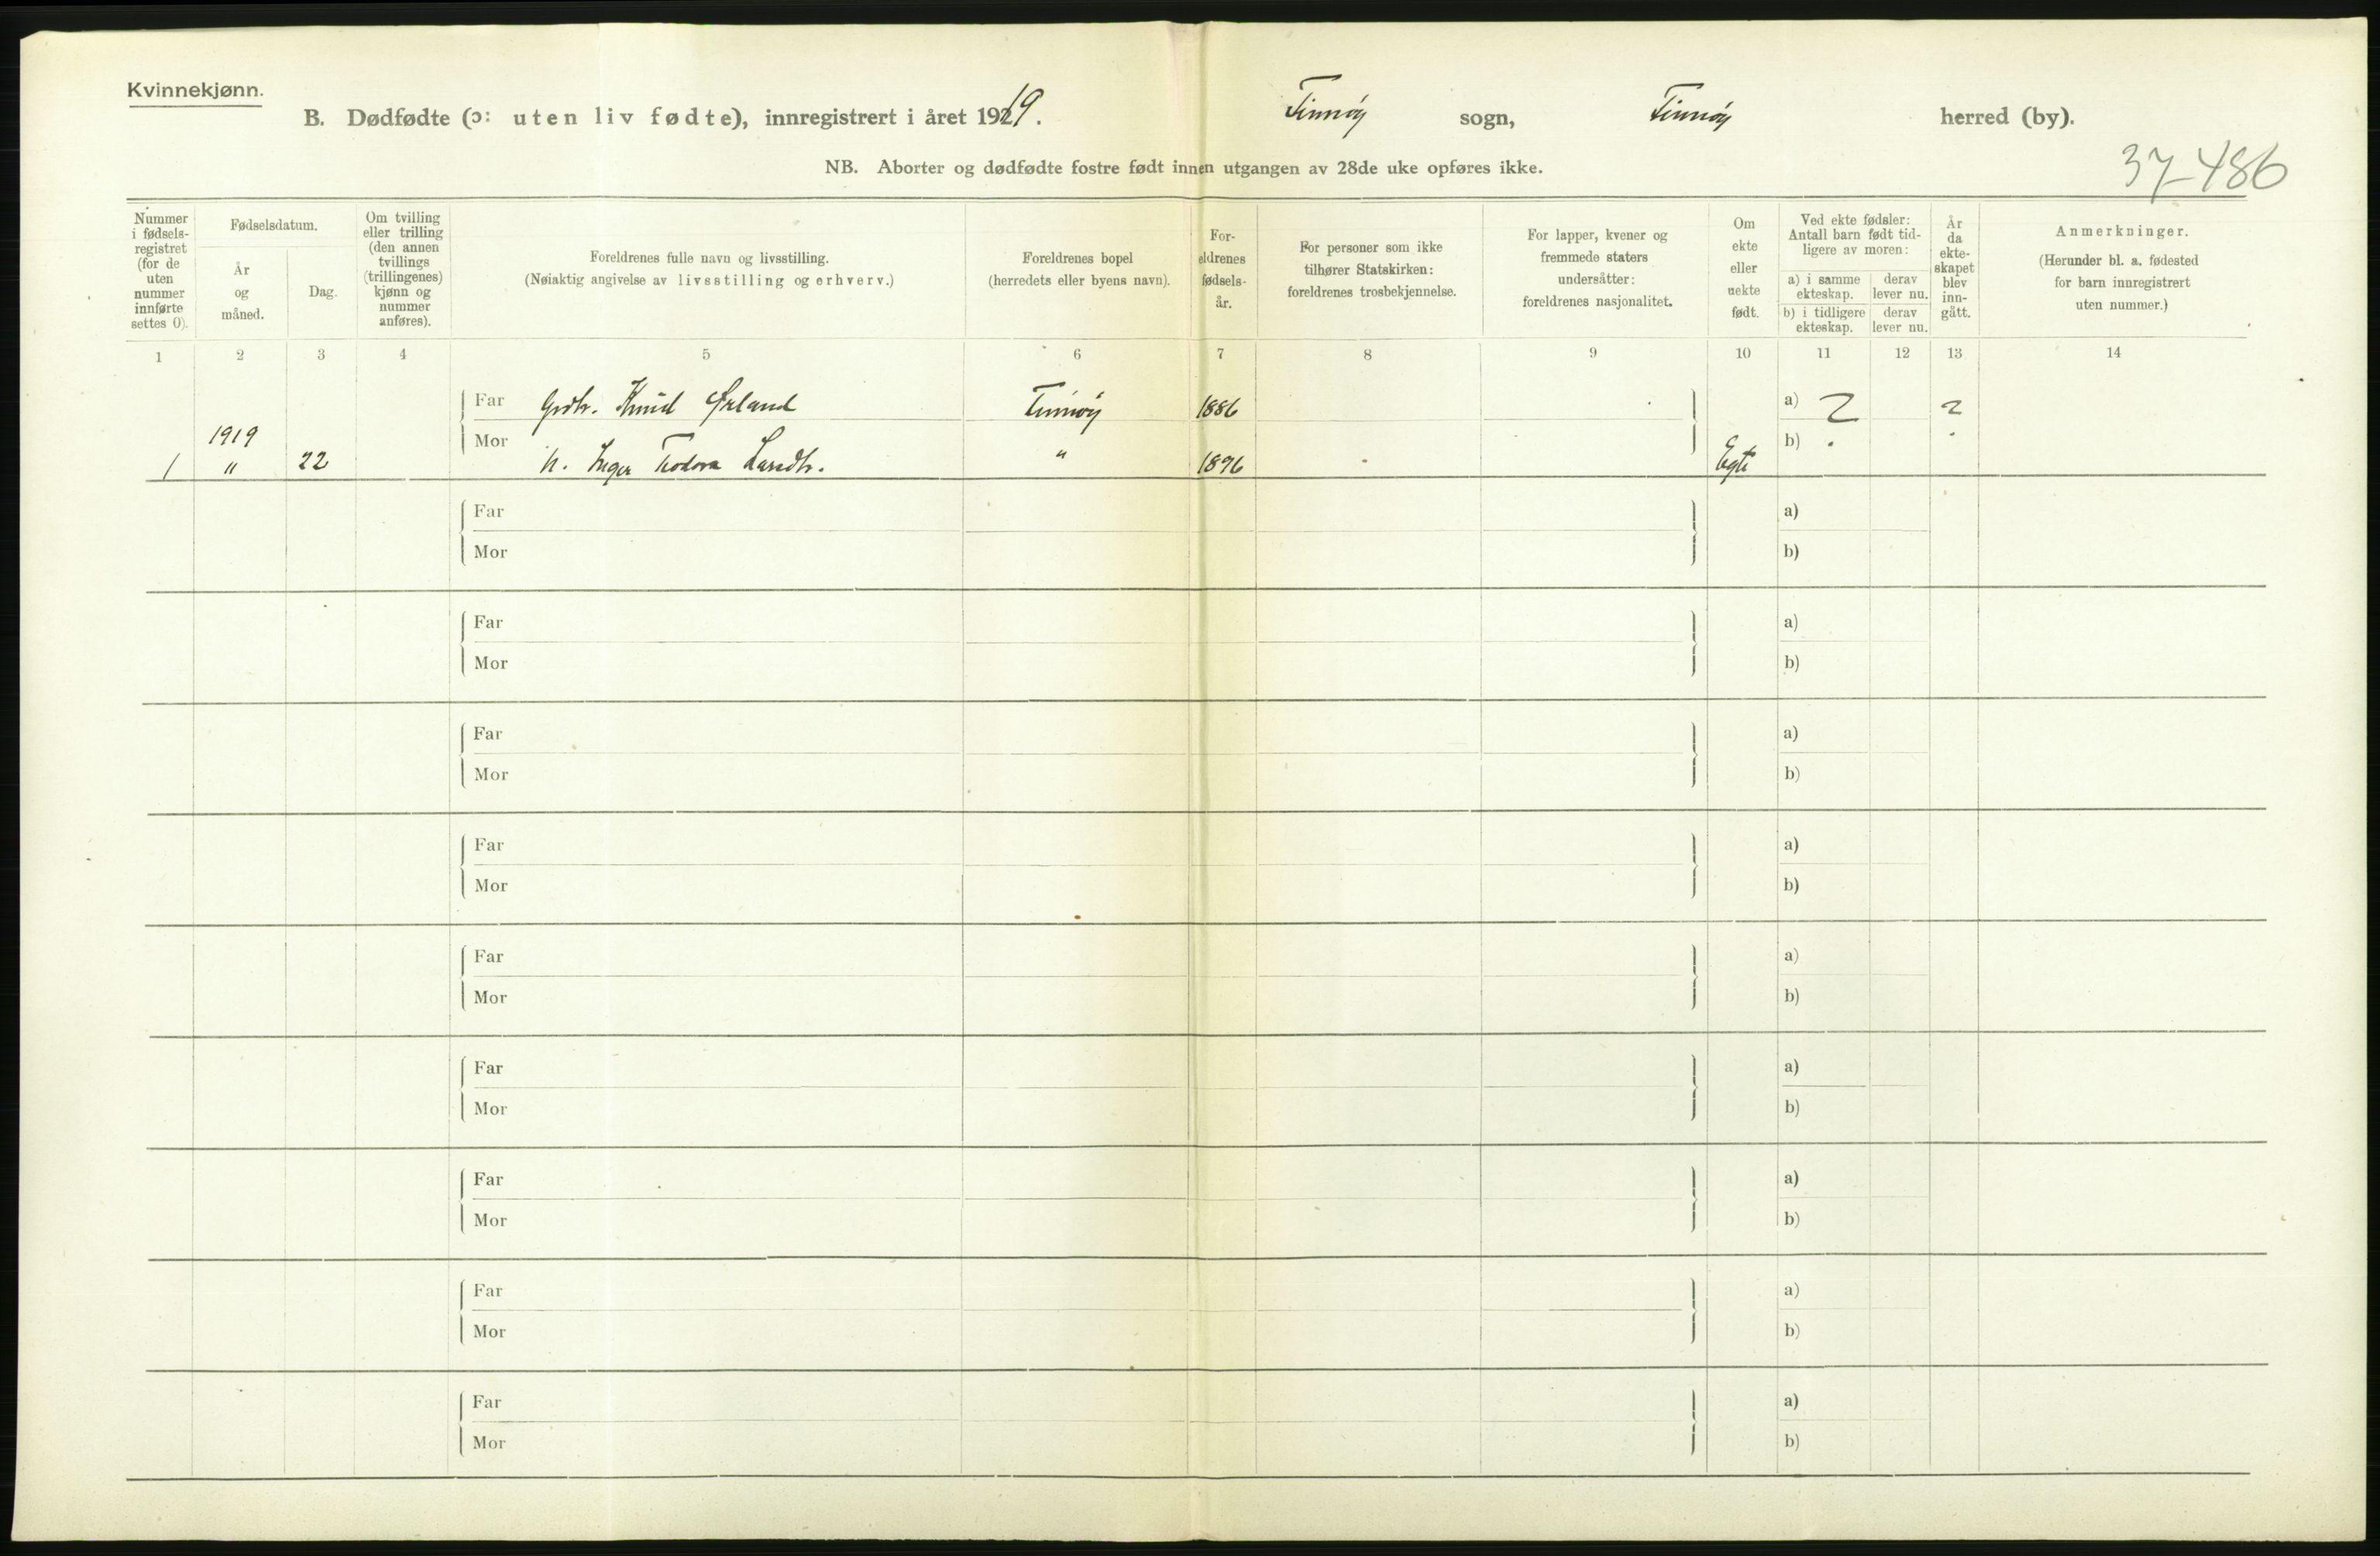 Kvinnekjønn.
B. Dødfødte (ɔ: uten liv fødte), innregistrert i året 1919. Finnøy sogn, Finnøy herred (by).
NB. Aborter og dødfødte fostre født innen utgangen av 28de uke opføres ikke.
37-486
Nummer
i fødsels-
registret
(for de
uten
nummer
innførte
settes 0).
Fødselsdatum.
År
og
måned.
Dag.
Om tvilling
eller trilling
(den annen
tvillings
(trillingenes)
kjønn og
nummer
anføres).
Foreldrenes fulle navn og livsstilling.
(Nøiaktig angivelse av livsstilling og erhverv.)
Foreldrenes bopel
(herredets eller byens navn).
For-
eldrenes
fødsels-
år.
For personer som ikke
tilhører Statskirken:
foreldrenes trosbekjennelse.
For lapper, kvener og
fremmede staters
undersåtter:
foreldrenes nasjonalitet.
Om
ekte
eller
uekte
født.
Ved ekte fødsler:
Antall barn født tid-
ligere av moren:
a) i samme
ekteskap.
derav
lever nu.
b) i tidligere
ekteskap.
derav
lever nu.
År
da
ekte-
skapet
blev
inn-
gått.
Anmerkninger.
(Herunder bl. a. fødested
for barn innregistrert
uten nummer.)
1 2 3 4 5 6 7 8 9 10 11 12 13 14
Far Grdbr. Knud Ørland Finnøy 1886 a) ?  ?
1919
Mor b)
1 " 22 h. Inger Teodora Larsdtr. " 1896 Egte
Far a)
Mor b)
Far a)
Mor b)
Far a)
Mor b)
Far a)
Mor b)
Far a)
Mor b)
Far a)
Mor b)
Far a)
Mor b)
Far a)
Mor b)
Far a)
Mor b)